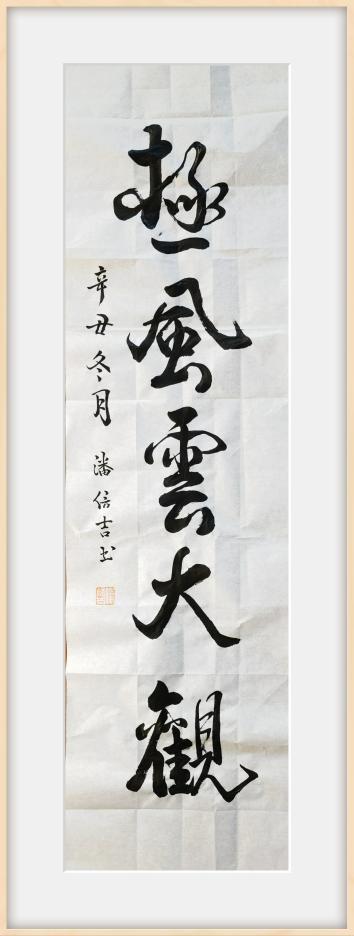 極風雲大觀
辛丑冬月 潘信吉书